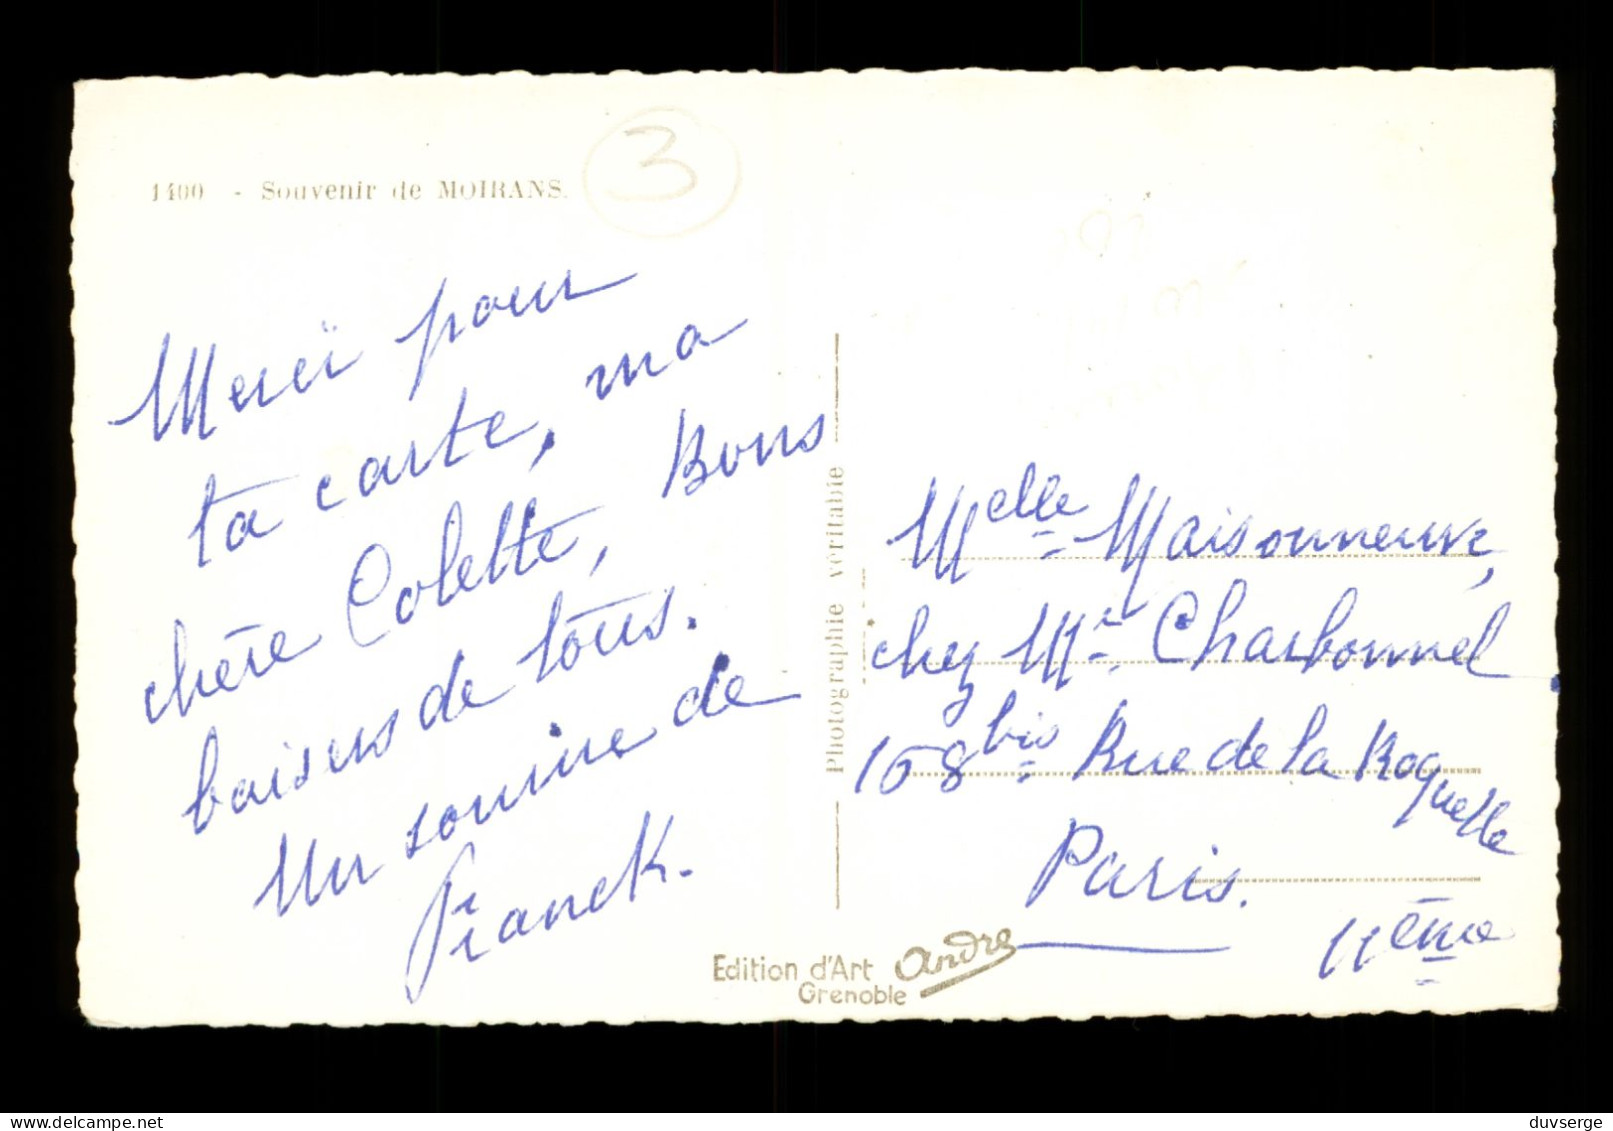 1400 - Souvenir de MOIRANS.
3
Merci pour
ta carte, ma
chère Colette, Bons
baisers de tous.
Un sourire de
Franck.
Photographie véritable
Melle Maisonneuve,
chez Mr Charbonnel
168 bis Rue de la Roquette
Paris.
11ème
Edition d'Art André
Grenoble
duvserge